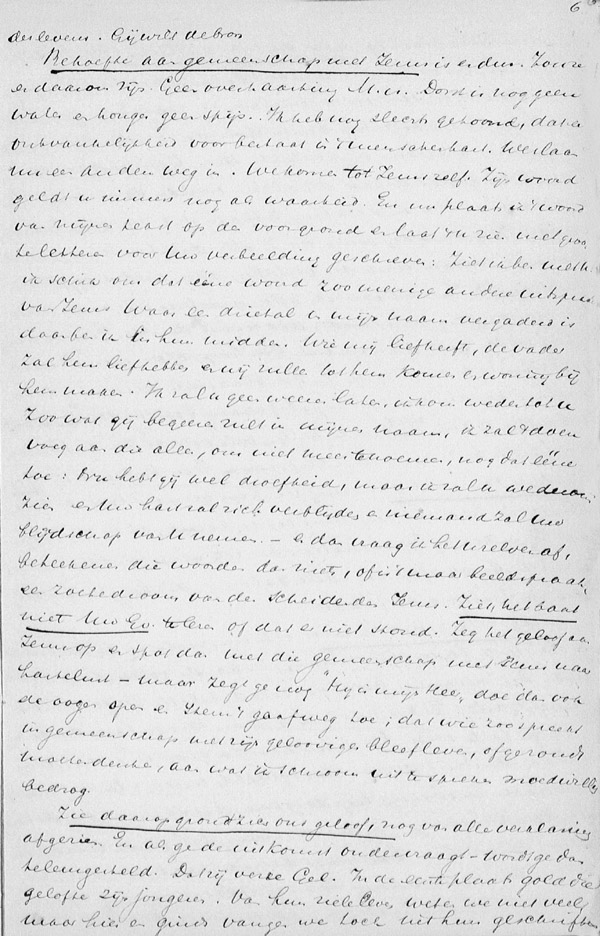 6
des levens. Gij wilt de bron
Behoefte aan gemeenschap met Jezus is er dus. Zou ze
er daarom zijn. Geen overhaasting M.u. Dorst is nog geen
water en honger geen spijs. Ik heb nog slechts getoond, dat er
ontvankelijkheid voor bestaat in 't menschenhart. We slaan
nu een anderen weg in. We komen tot Jezus zelf. Zijn woord
geldt u immers nog als waarheid. En nu plaats ik 't woord
van mijnen tekst op den voorgrond en laat 't u zien met groote
letters voor Uw verbeelding geschreven: Ziet ik ben met u
ik schik om dat ééne woord zoo menige andere uitspraak
van Jezus Waar een drietal in mijn naam vergaderd is
daar ben ik in hun midden. Wie mij liefheeft, de vader
zal hem liefhebben en wij zullen tot hem komen en woning bij
hem maken. Ik zal u geen weezen laten, ik kom weder tot u
Zoo wat gij begeeren zult in mijnen naam, ik zal 't doen
voeg aan die allen, om niet meer te noemen, nog dat ééne
toe: Nu hebt gij wel droefheid, maar ik zal u wederom
zien en Uw hart zal zich verblijden en niemand zal Uw
blijdschap van U nemen. – en dan vraag ik het U zelven af,
beteekenen die woorden dan niets, of is 't maar beeldspraak,
een zoete droom van den scheidenden Jezus. Ziet, het baat
niet Uw Ev. te lezen of dat er niet stond. Zeg het geloof aan
Jezus op en spot dan met die gemeenschap met Hem naar
hartelust – maar zegt ge nog "Hij is mijn Heer, doe dan ook
de oogen open en stem 't gaafweg toe; dat wie zoo spreekt
in gemeenschap met zijn geloovigen bleef leven, of ge zoudt
moeten denken, aan wat ik schroom uit te spreken moedwillig
bedrog.
Zie daarop grondt zich ons geloof, nog van alle verklaring
afgezien. En als ge de uitkomst ondervraagt – wordt ge dan
teleurgesteld. Dat zij verre Gel. In de eerste plaats gold die
gelofte zijn jongeren. Van hun zieleleven weten we niet veel,
maar hier en ginds vangen we toch uit hun geschriften